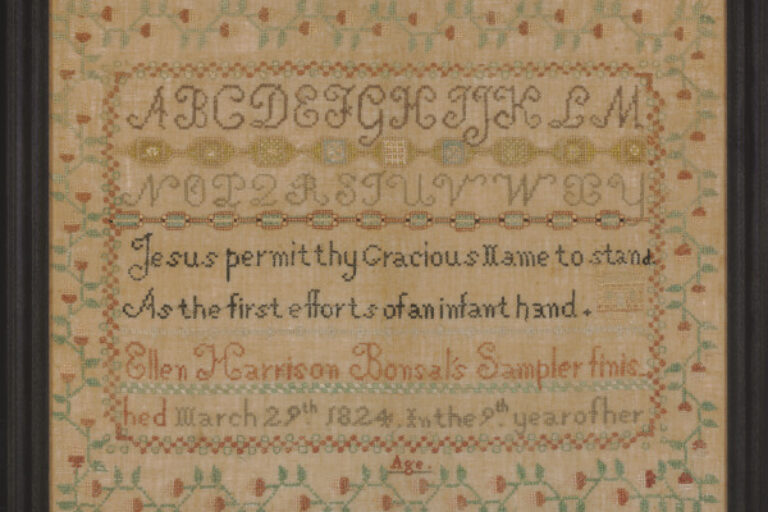 ABCDEFGHIJKLM
NOPQRSTUVWXY
Jesus permit thy Gracious Name to stand
As the first efforts of an infant hand.
Ellen Harrison Bonsal's Sampler finis
hed March 29th 1824. In the 9th year of her
Age.